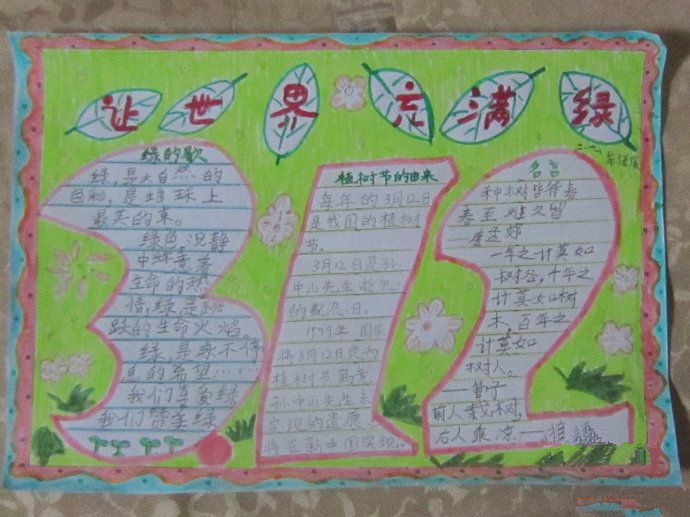 让世界充满绿
绿的歌
绿,是大自然的
色彩,是地球上
最美的来。
绿色沉静
中洋意着
生命的热
情,绿是跳
跃的生命火焰
绿,是永不停
息的希望……
我们喜黄绿
我们赞美绿
植树节的由来
每年的3月12日
是我国的植树
节。
3月12日是孙
中山先生逝世
的纪念日。
1979年,国家
将3月12日定为
植树节寓意,
孙中山先生未
实现的遗愿
将在新中国实现。
名言
种树皆待春
春至难久留
孟郊
一年之计莫如
树谷,十年之
计莫如树
木,百年之
计莫如
树人。
——管子
前人栽树,
右人乘凉——俗